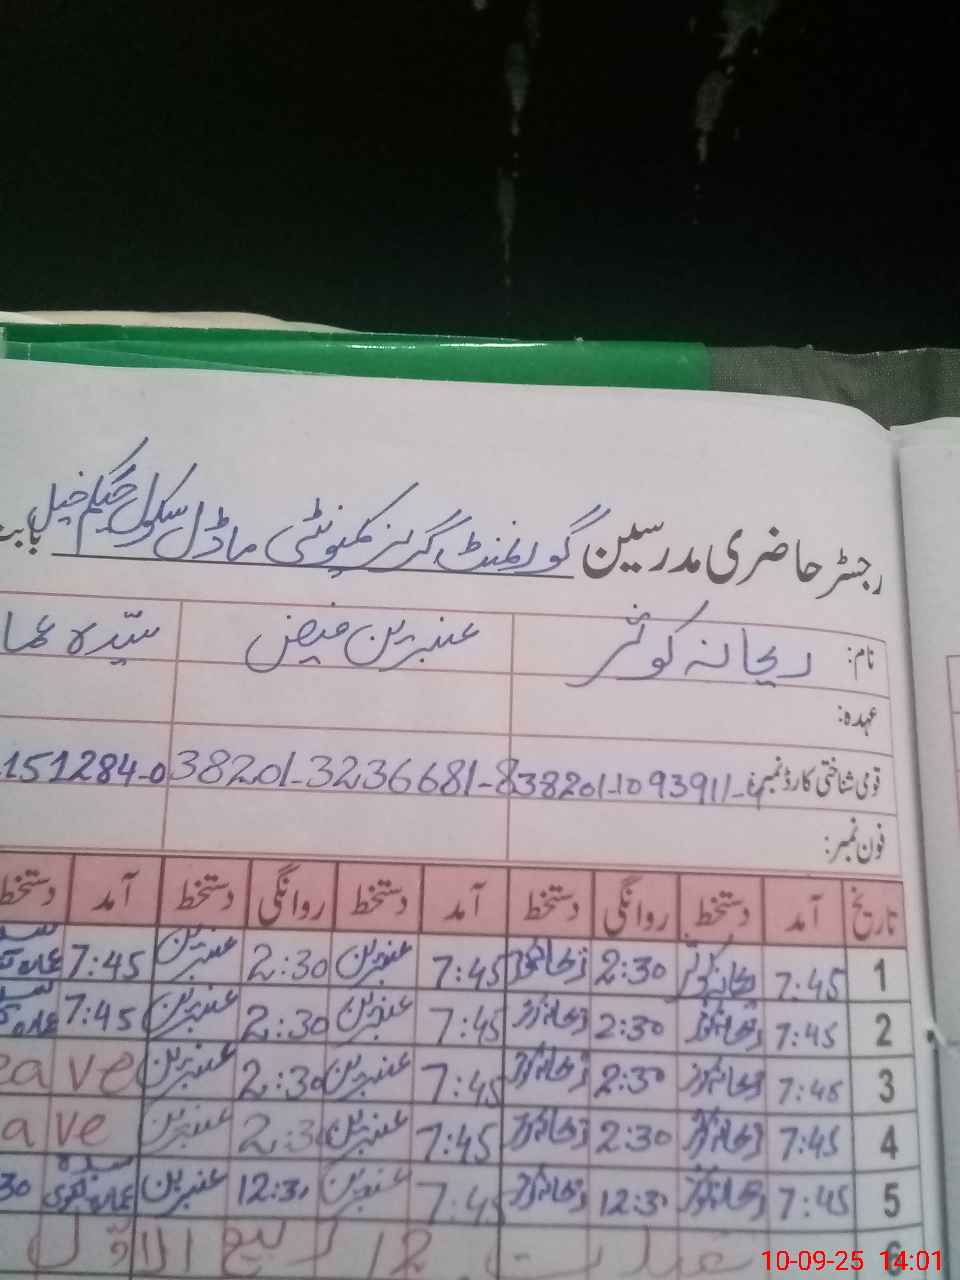 رجسٹر حاضری مدرسین گورنمنٹ گرلز کمیونٹی ماڈل سکول حکیم خیل بابت
نام: ریحانہ کوثر عنبرین فیض سیّدہ عما
عہدہ:
قومی شناختی کارڈ نمبر: 38201-1093911- 38201-3236681-8 151284-0
فون نمبر:
تاریخ آمد دستخط روانگی دستخط آمد دستخط روانگی دستخط آمد دستخط
1 7:45 ریحانہ کوثر 2:30 ریحانہ کوثر 7:45 عنبرین 2:30 عنبرین 7:45
2 7:45 ریحانہ کوثر 2:30 ریحانہ کوثر 7:45 عنبرین 2:30 عنبرین 7:45
3 7:45 ریحانہ کوثر 2:30 ریحانہ کوثر 7:45 عنبرین 2:30 عنبرین eave
4 7:45 ریحانہ کوثر 2:30 ریحانہ کوثر 7:45 عنبرین 2:30 عنبرین ave
5 7:45 ریحانہ کوثر 12:30 ریحانہ کوثر 7:45 عنبرین 12:30 عنبرین سیدہ 30
6 12 ربیع الاوّل
10-09-25 14:01